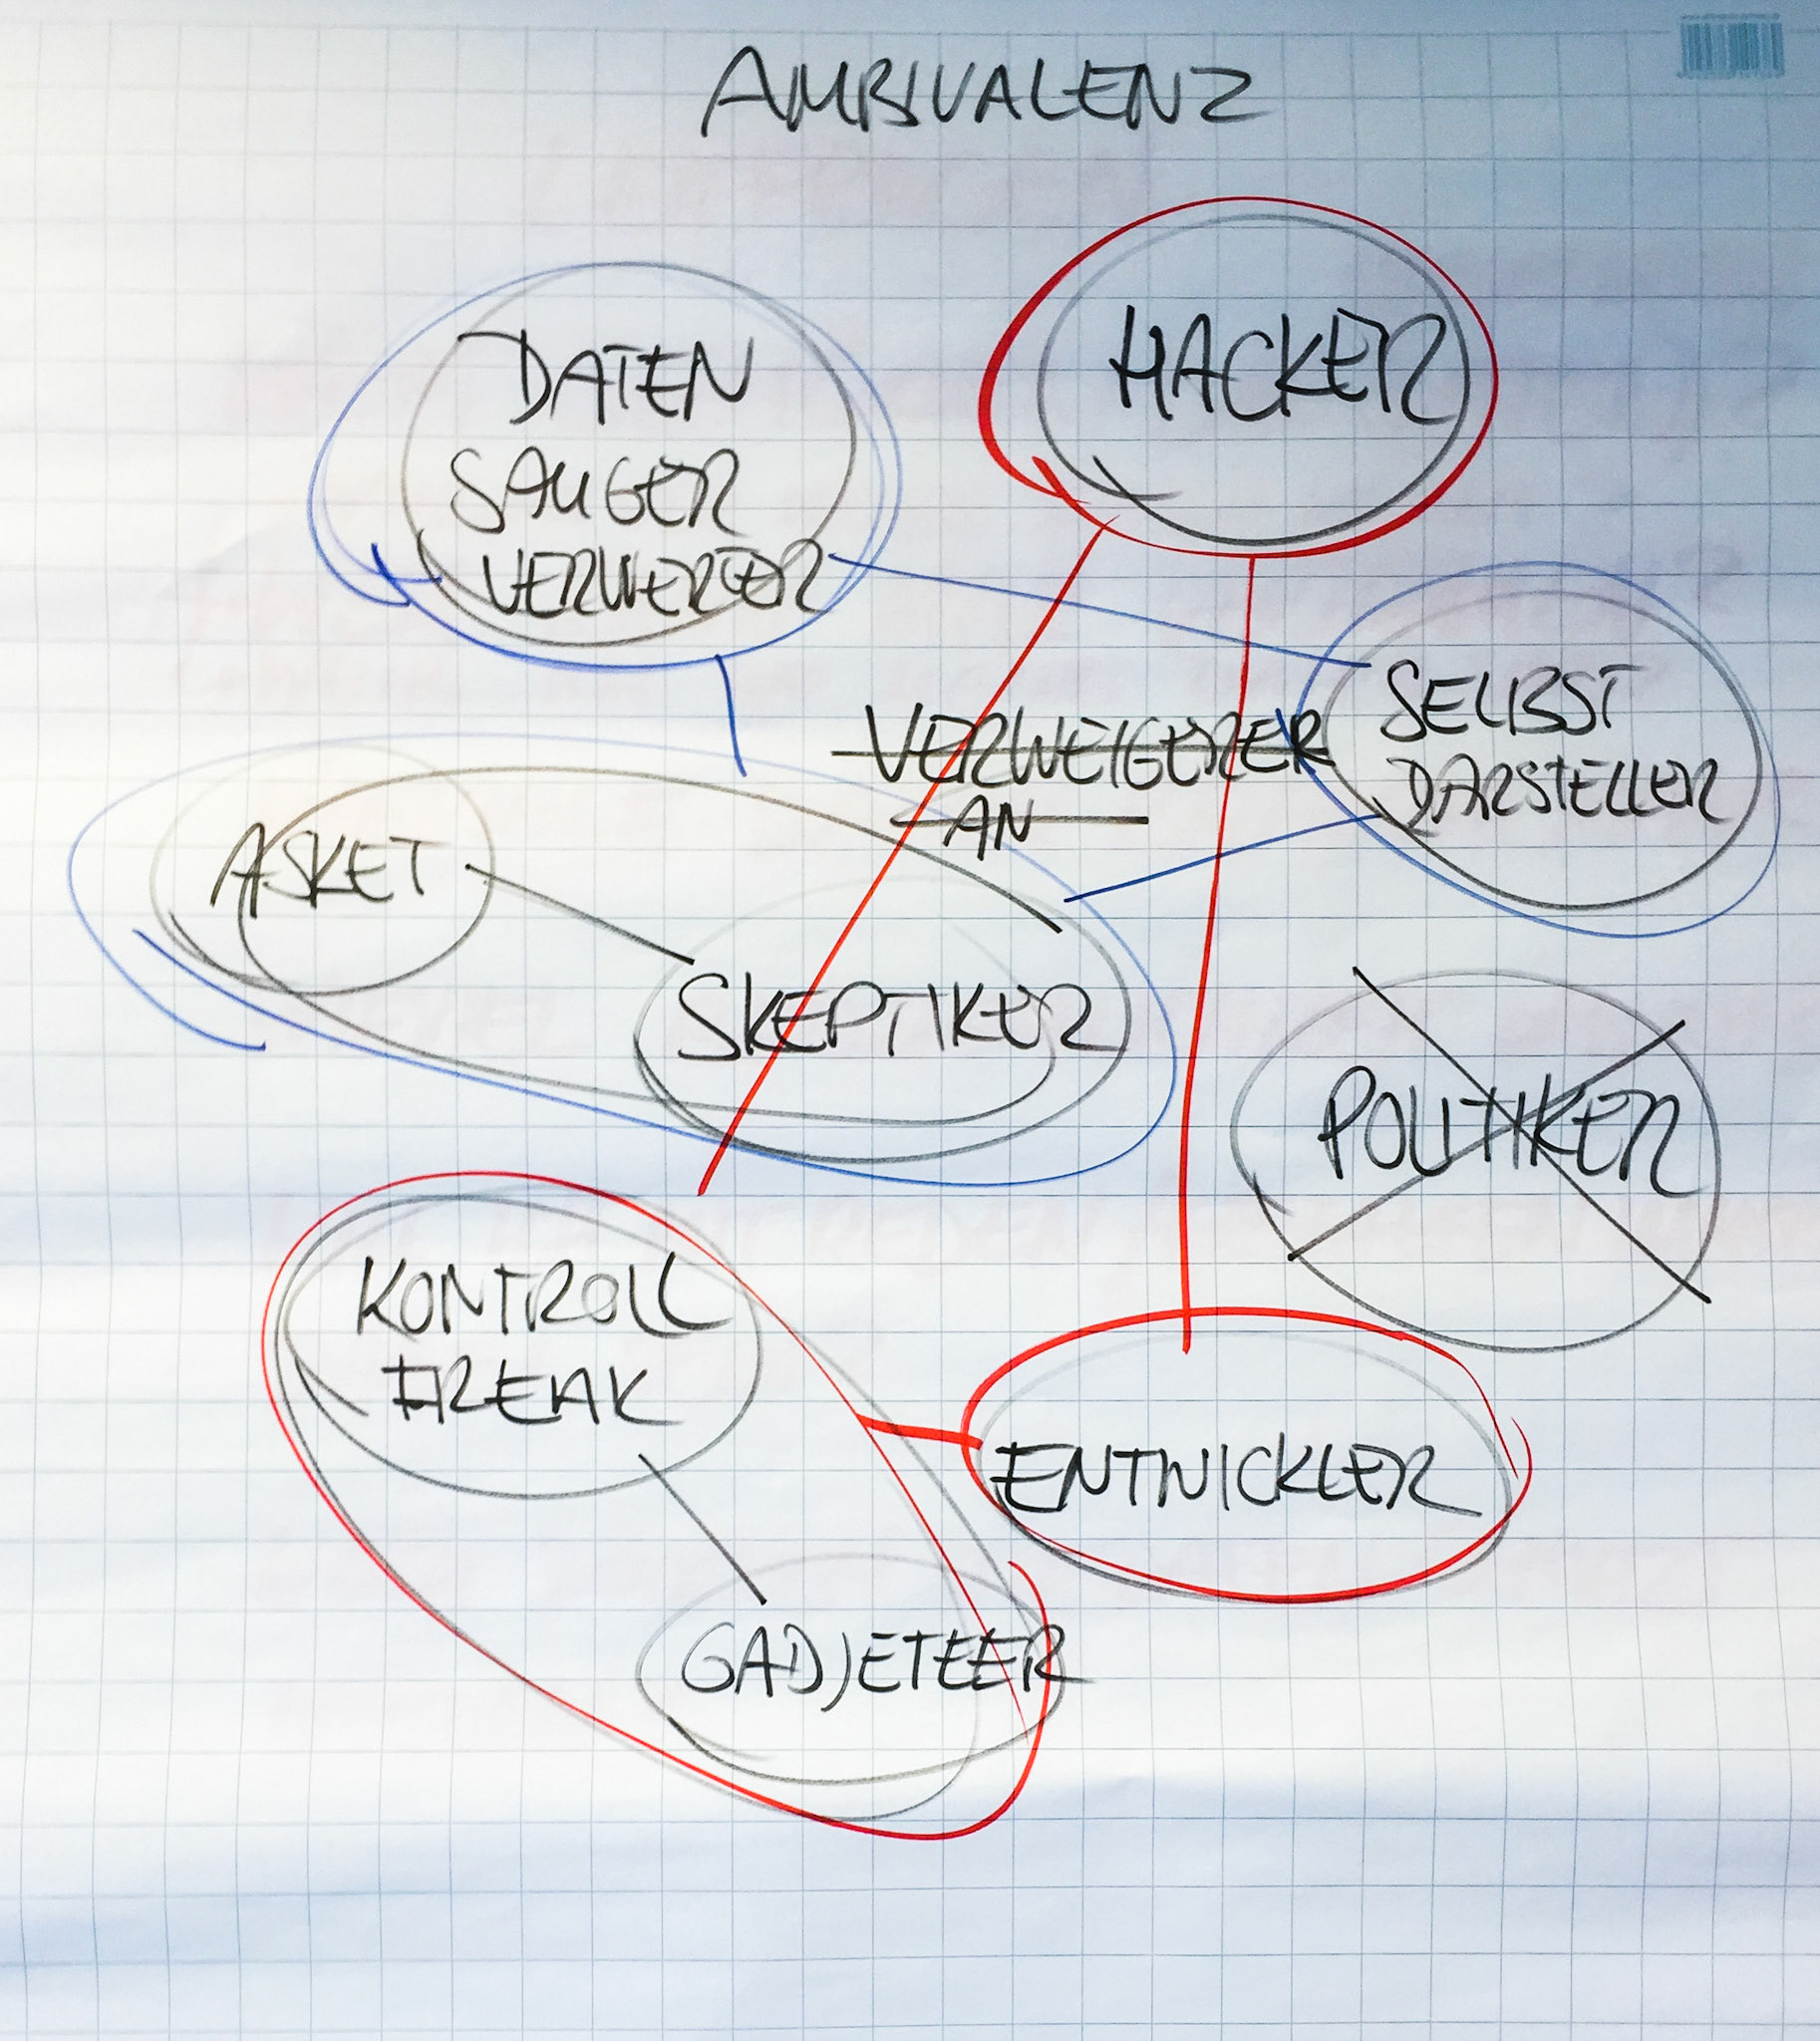 AMBIVALENZ
HACKER
DATEN
SAUGER
VERWERTER
SELBST
DARSTELLER
VERWEIGERER
AN
ASKET
SKEPTIKER
POLITIKER
KONTROLL
FREAK
ENTWICKLER
GADJETEER